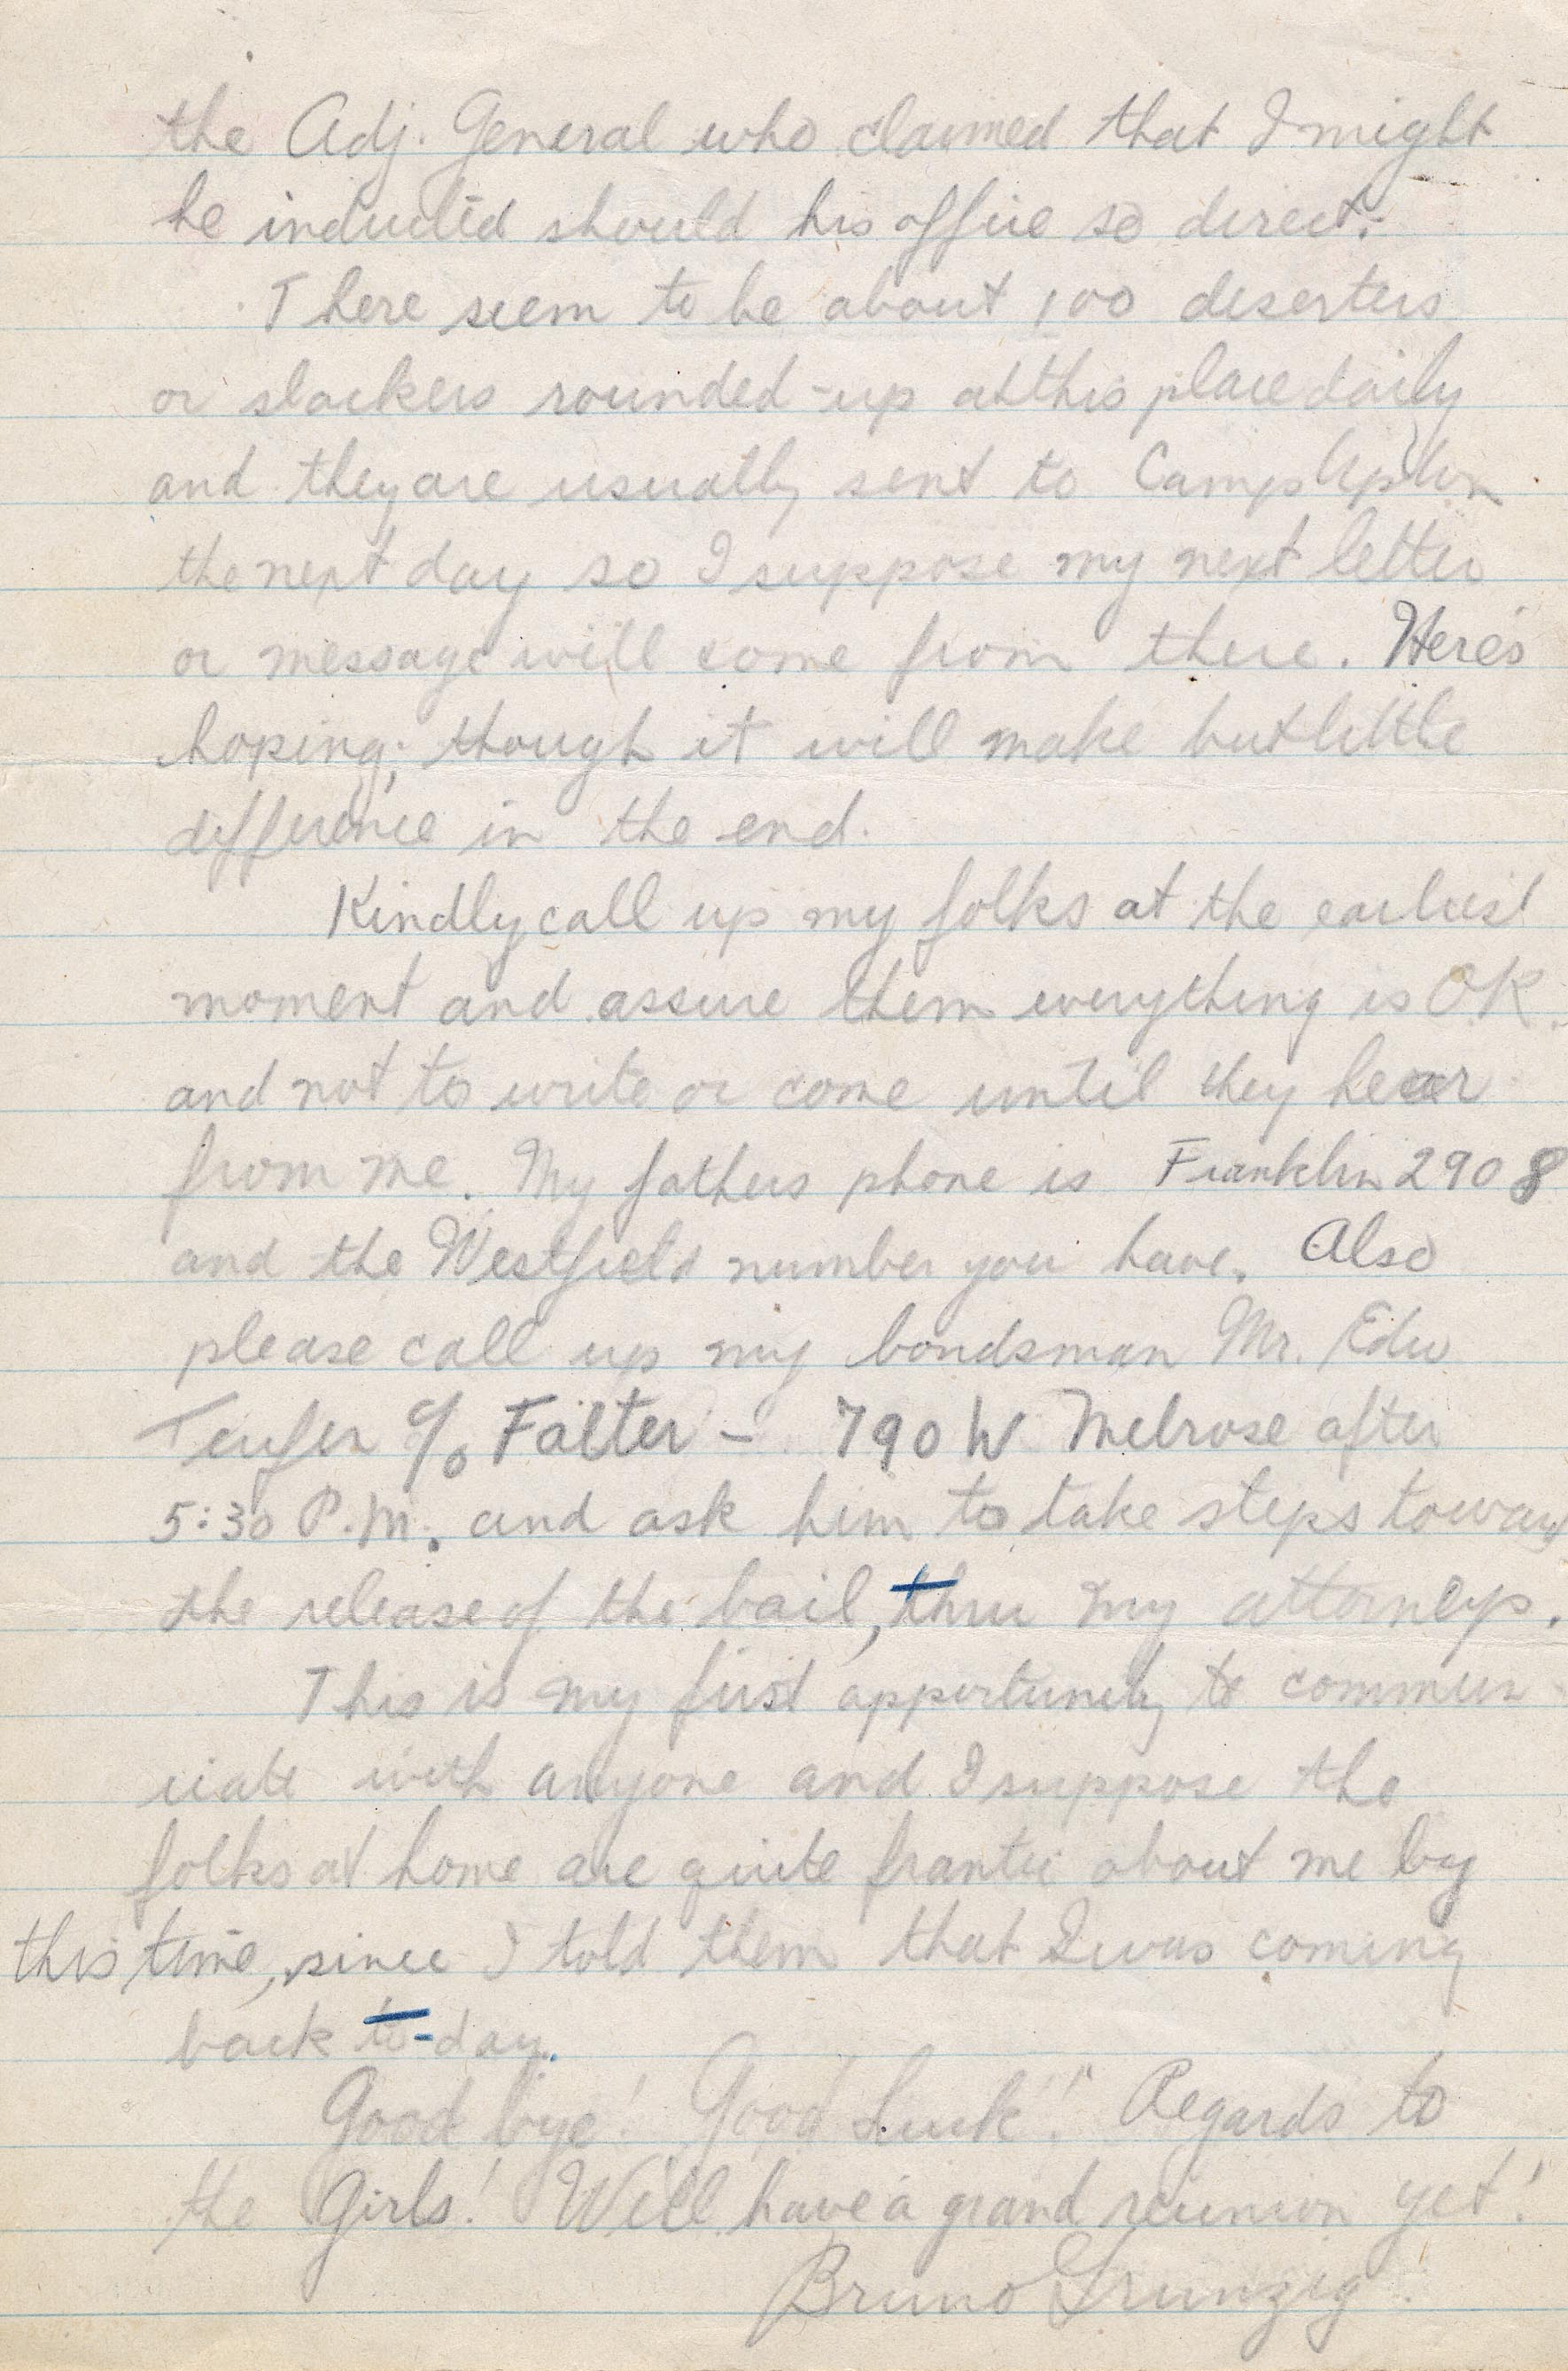 the Adj. General who claimed that I might
be inducted should his office so direct.
There seem to be about 100 deserters
or slackers rounded-up at this place daily
and they are usually sent to Camp Upton
the next day so I suppose my next letter
or message will come from there. Here's
hoping; though it will make but little
difference in the end.
Kindly call up my folks at the earliest
moment and assure them everything is O.K.
and not to write or come until they hear
from me. My fathers phone is Franklin 2908
and the Westfield number you have. Also
please call up my bondsman Mr. Edw
c/o Falter - 790 W Melrose after
5:30 P.M. and ask him to take steps toward
the release of the bail, thru my attorneys.
This is my first opportunity to commun-
icate with anyone and I suppose the
folks at home are quite frantic about me by
this time, since I told them that I was coming
back to-day.
Good bye! Good Luck! Regards to
the Girls! We'll have a grand reunion yet!
Bruno Grunzig.